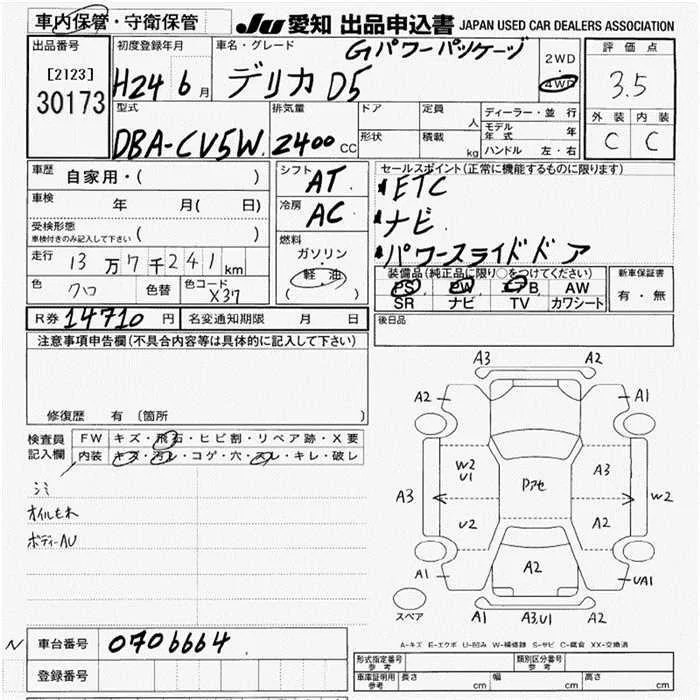 車内保管・守衛保管
JU 愛知 出品申込書 JAPAN USED CAR DEALERS ASSOCIATION
出品番号 [2123] 30173
初度登録年月 H24 6 月
車名・グレード Gパワーパッケージ デリカ D5
2WD ・ 4WD
評価点 3.5
外装 内装
C C
型式 DBA-CV5W
排気量 2400 CC
ドア
形状
定員 人
積載 kg
ディーラー・並行
モデル年式 年
ハンドル 左・右
車歴 自家用・( )
車検 年 月( 日)
受検形態 車検付きのみ記入して下さい ( )
走行 13 万 7 千 241 km
色 クロ 色替 色コード X37
シフト AT
冷房 AC
燃料 ガソリン・軽油 ( )
セールスポイント(正常に機能するものに限ります)
ETC
ナビ
パワースライドドア
装備品(純正品に限り○をつけてください)
PS PW エアB AW
SR ナビ TV カワシート
新車保証書 有・無
後日品
R券 14710 円 名変通知期限 月 日
注意事項申告欄(不具合内容等は具体的に記入して下さい)
修復歴 有 (箇所 )
検査員記入欄
FW キズ・飛石・ヒビ割・リペア跡・X要
内装 キズ・汚レ・コゲ・穴・スレ・キレ・破レ
シミ
オイルもれ
ボディーAU
A3 A2
A2 A1
W2 U1 Pアセ A3
A3 W2
U2 A2
A1 A2 UA1
スペア A1 A3,U1 A2
A-キズ E-エクボ U-凹み W-補修跡 S-サビ C-腐食 XX-交換済
N 車台番号 0706664
登録番号
形式指定番号 参考 類別区分番号 参考
車庫証明用 参考 長さ cm 幅 cm 高さ cm